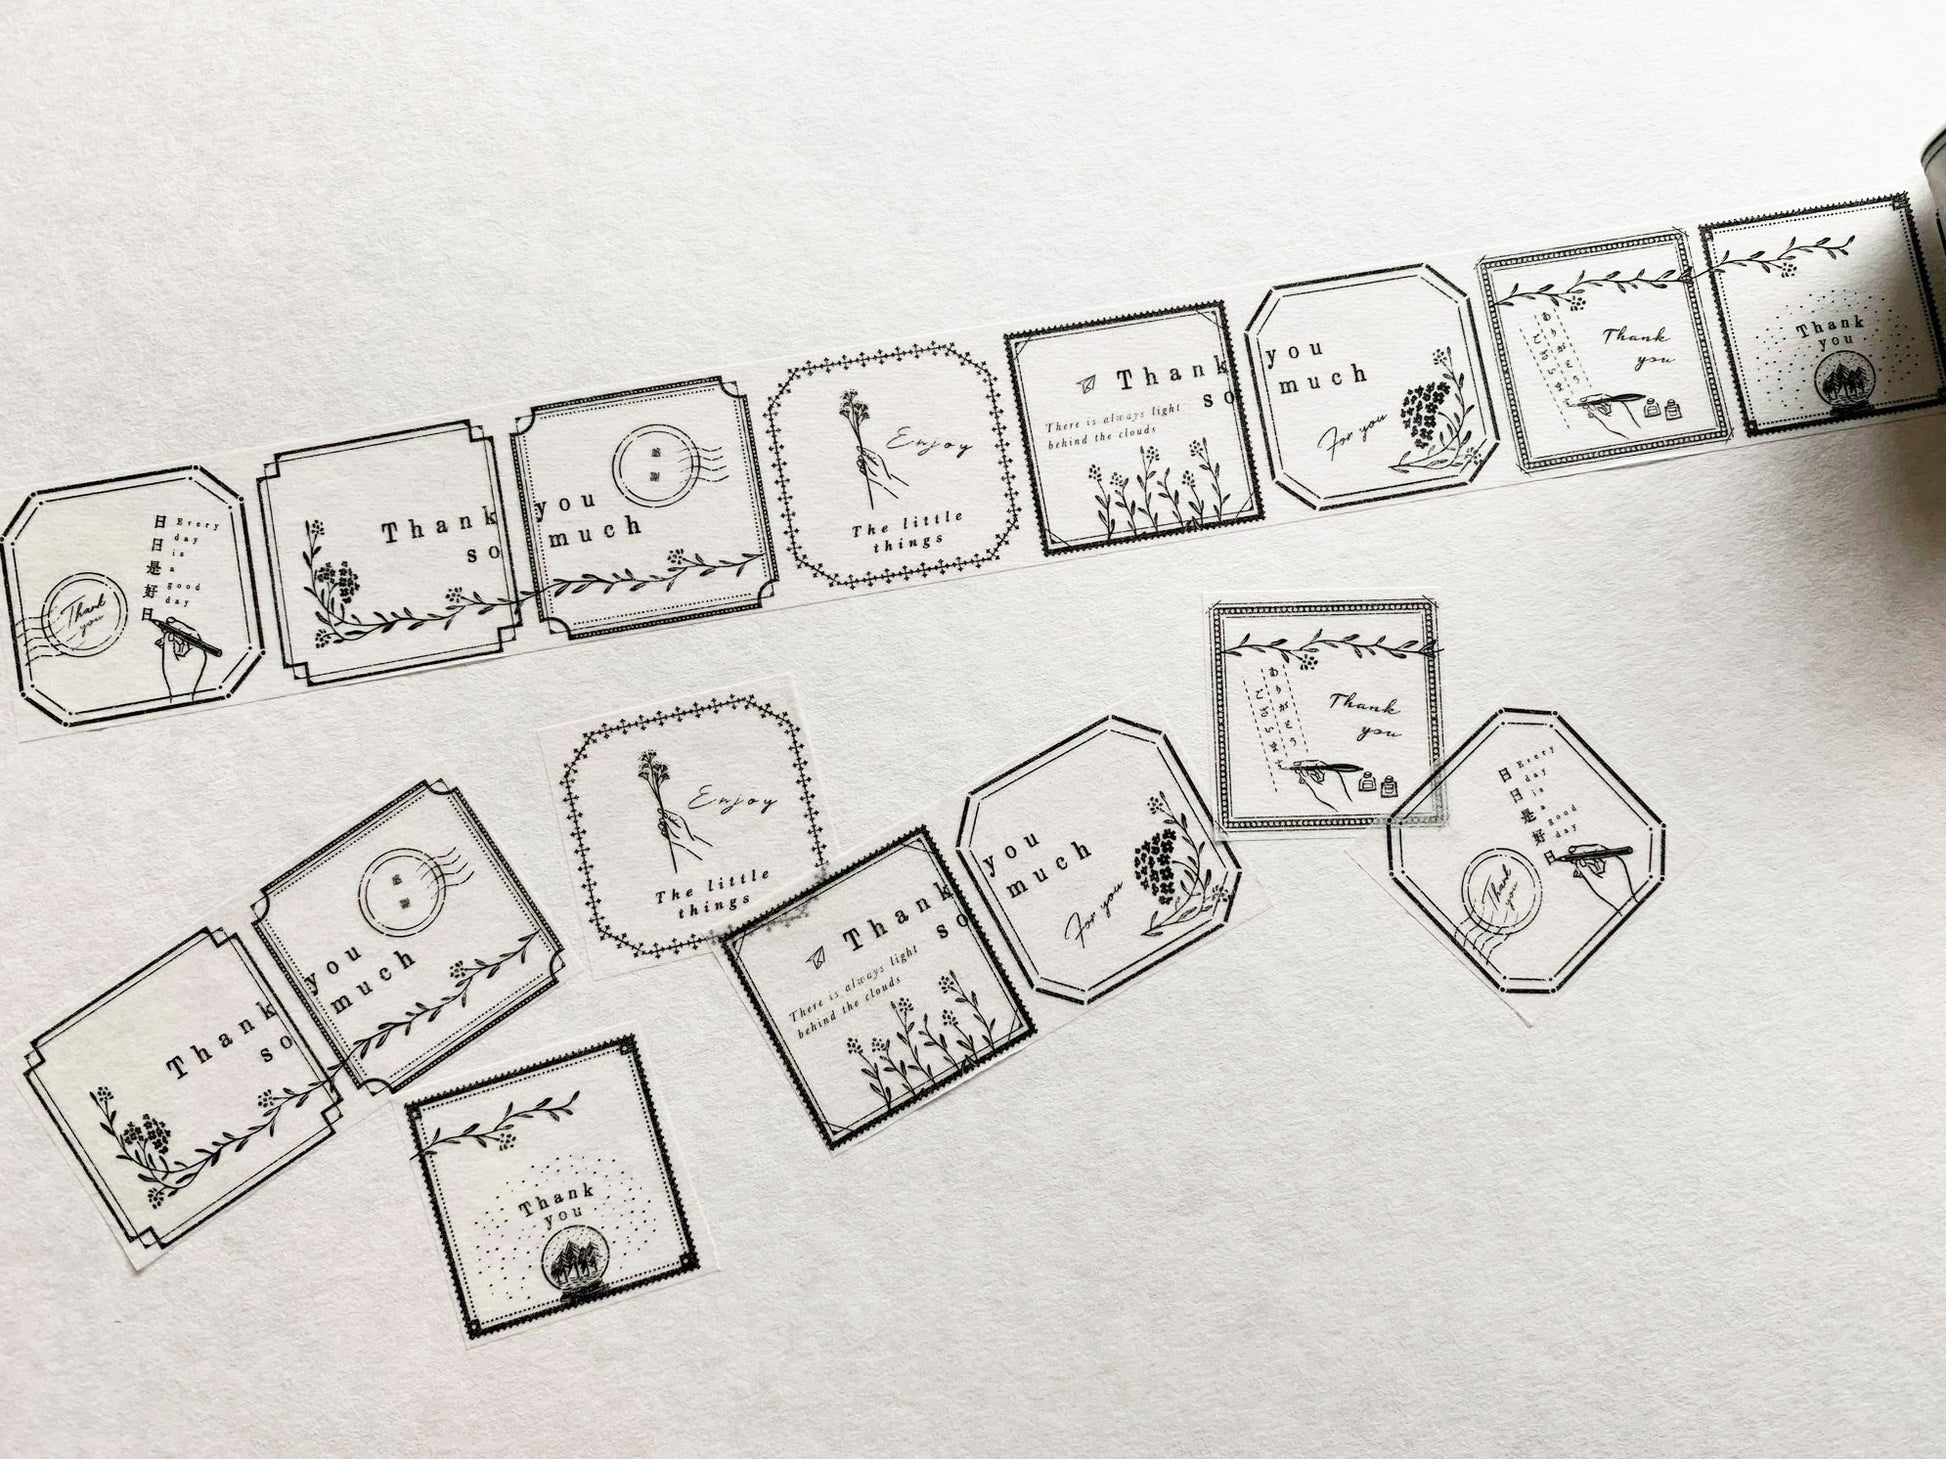 日日是好日
Every
day
is
a
good
day
Thank
you
Thank
so
you
much
Enjoy
The little
things
Thank
so
There is always light
behind the clouds
you
much
For you
ありがとう
ございます
Thank
you
Thank
you
Enjoy
The little
things
ありがとう
ございます
Thank
you
日日是好日
Every
day
is
a
good
day
Thank
you
you
much
Thank
so
Thank
so
There is always light
behind the clouds
you
much
For you
Thank
you